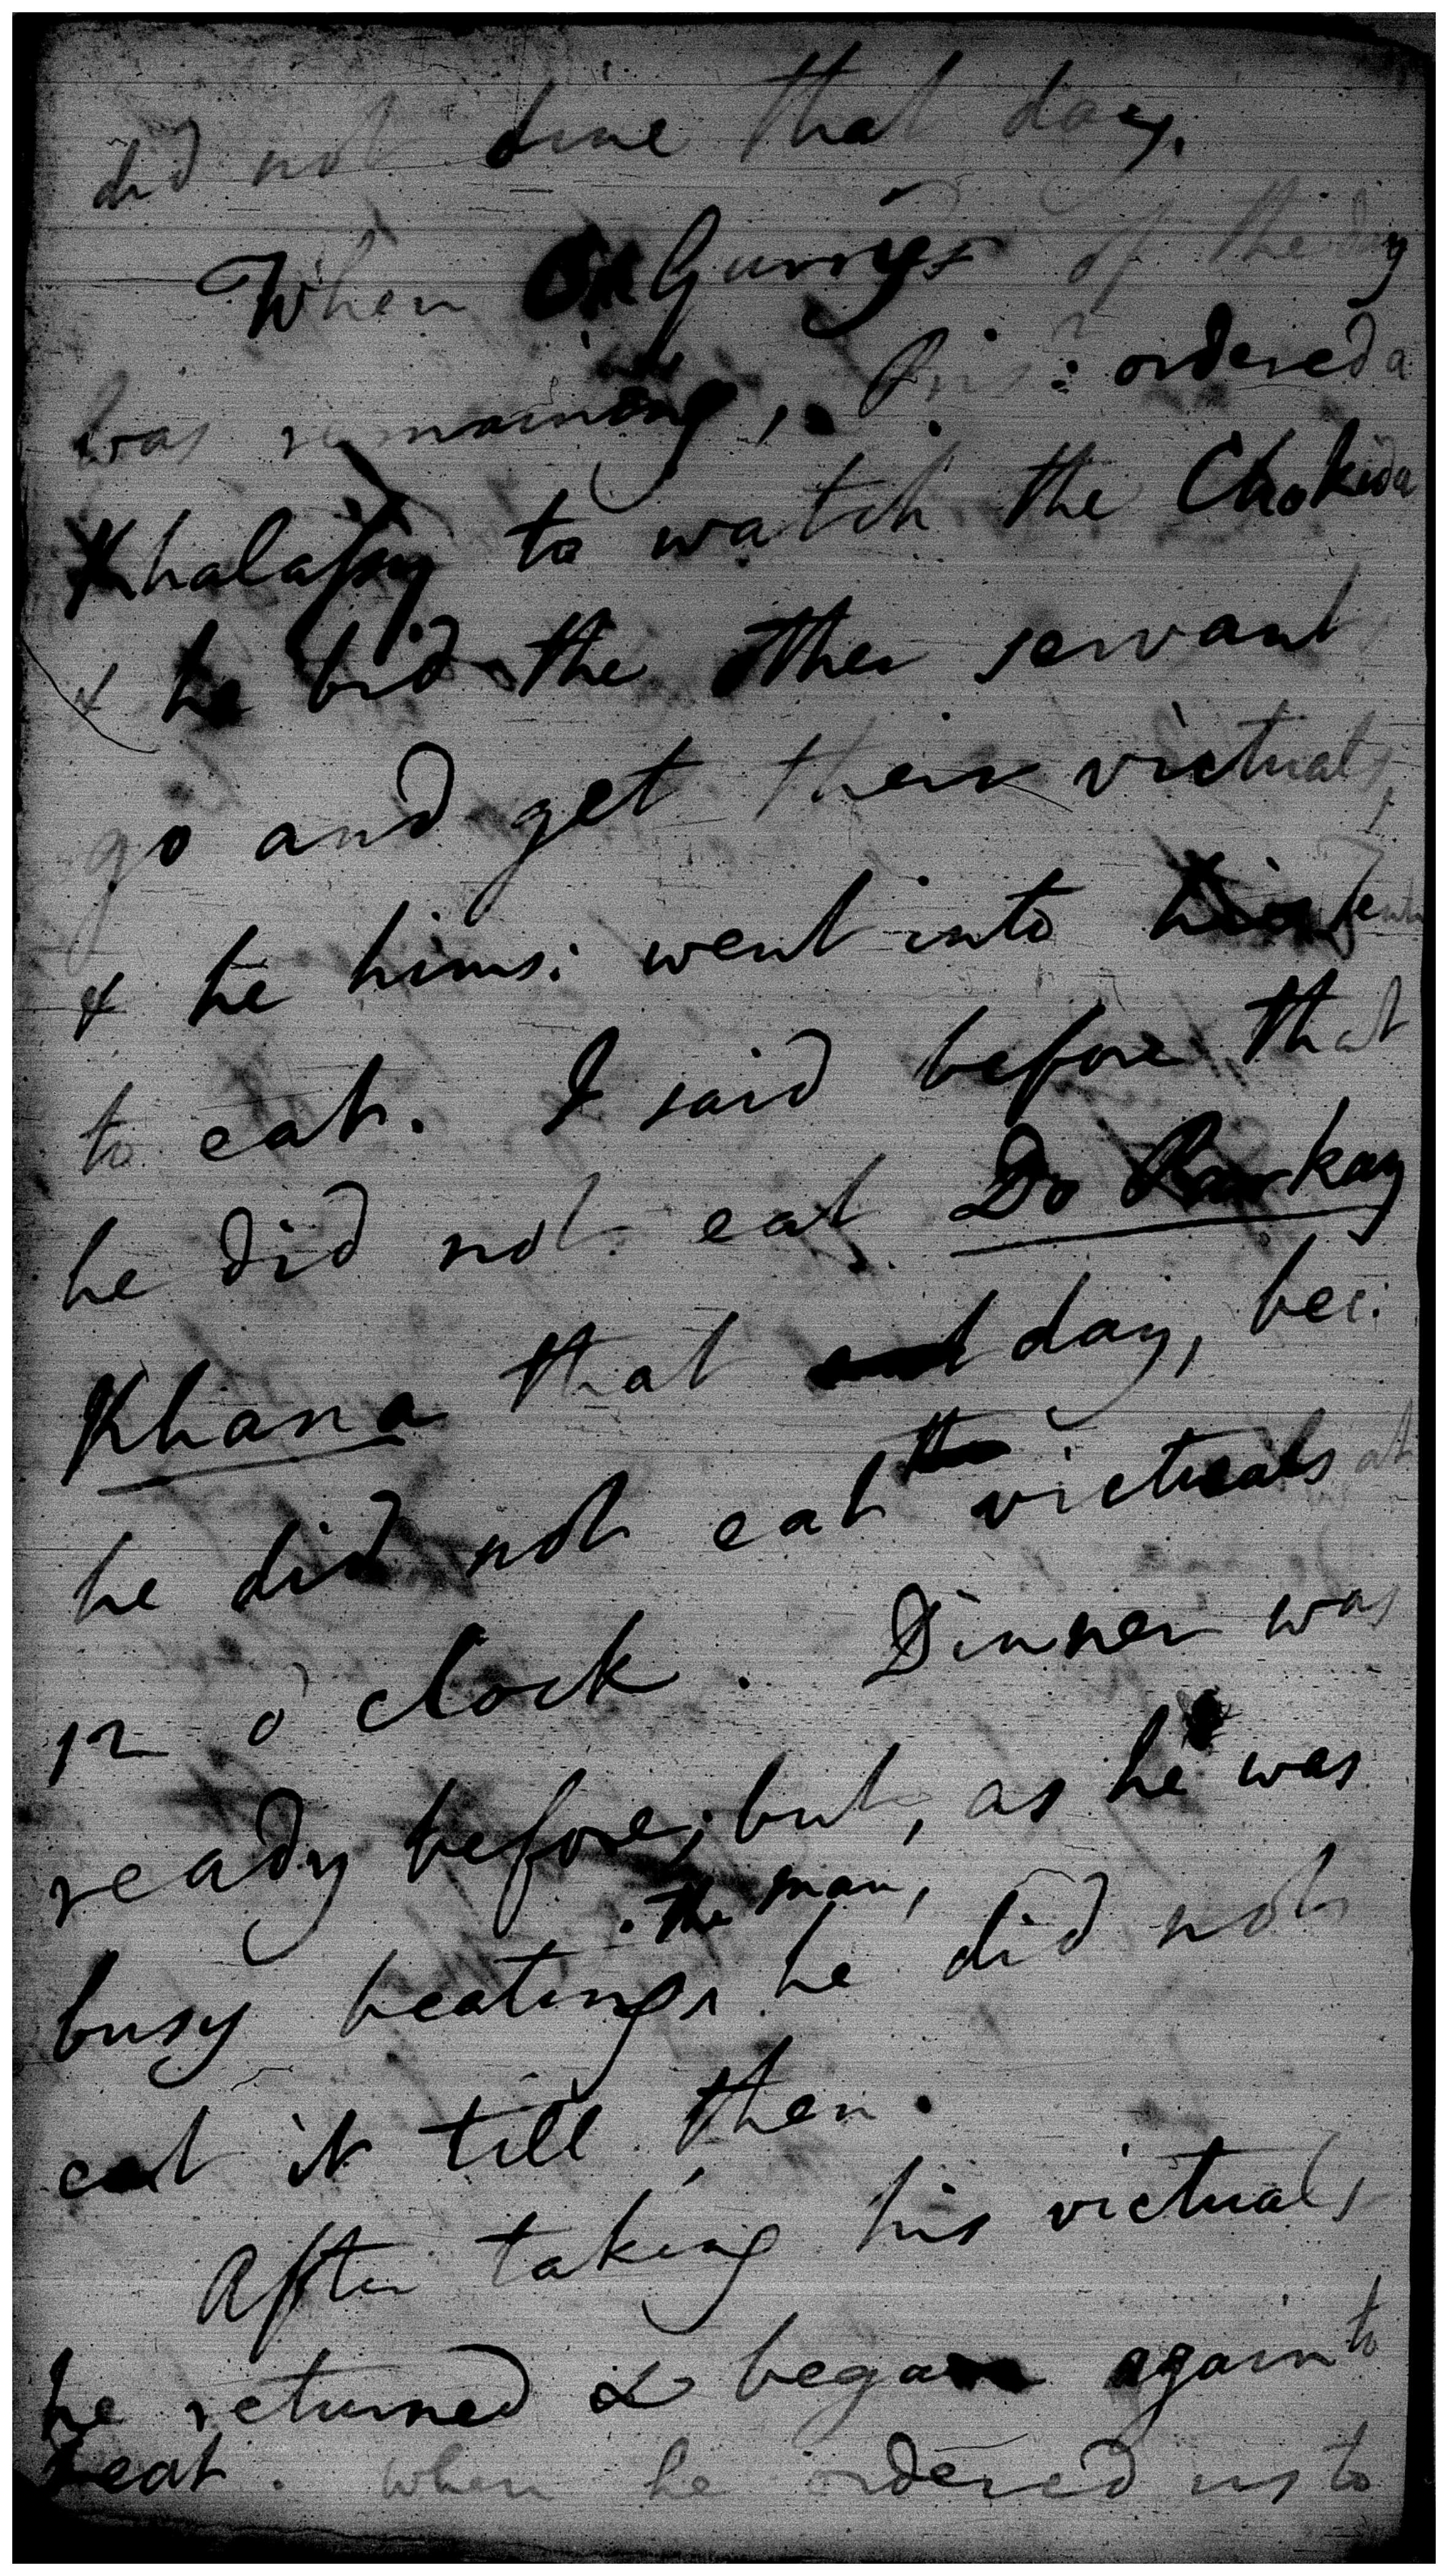 did not dine that day.
When Gurrys of the day
was remaining, Pris: ordered a
Khalassy to watch the Chokida
& he bid the other servant
go and get their victuals,
& he hims: went into his tent
to eat. I said before that
he did not eat Do Parkay
Khana that day, bec:
he did not eat the victuals at
12 o'clock. Dinner was
ready before; but, as he was
busy beating the man, he did not
eat it till then.
After taking his victuals
he returned & began again to
beat. When he ordered us to